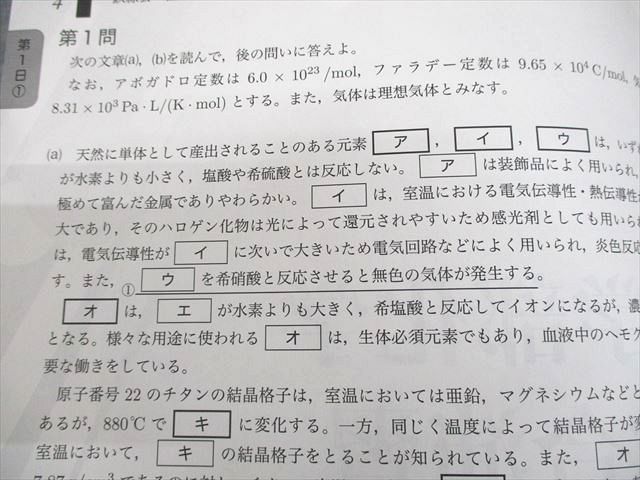 4
第1日①
第1問
次の文章(a), (b)を読んで, 後の問いに答えよ。
なお, アボガドロ定数は 6.0 × 10²³ /mol, ファラデー定数は 9.65 × 10⁴ C/mol, 気
8.31 × 10³ Pa・L/(K・mol) とする。また, 気体は理想気体とみなす。
(a) 天然に単体として産出されることのある元素 ア , イ , ウ は, いずれ
が水素よりも小さく, 塩酸や希硫酸とは反応しない。 ア は装飾品によく用いられ,
極めて富んだ金属でありやわらかい。 イ は, 室温における電気伝導性・熱伝導性が
大であり, そのハロゲン化物は光によって還元されやすいため感光剤としても用いられ
は, 電気伝導性が イ に次いで大きいため電気回路などによく用いられ, 炎色反応
す。また, ① ウ を希硝酸と反応させると無色の気体が発生する。
オ は, エ が水素よりも大きく, 希塩酸と反応してイオンになるが, 濃
となる。様々な用途に使われる オ は, 生体必須元素でもあり, 血液中のヘモグ
要な働きをしている。
原子番号 22 のチタンの結晶格子は, 室温においては亜鉛, マグネシウムなどと
あるが, 880℃ で キ に変化する。一方, 同じく温度によって結晶格子が変
室温において, キ の結晶格子をとることが知られている。また, オ